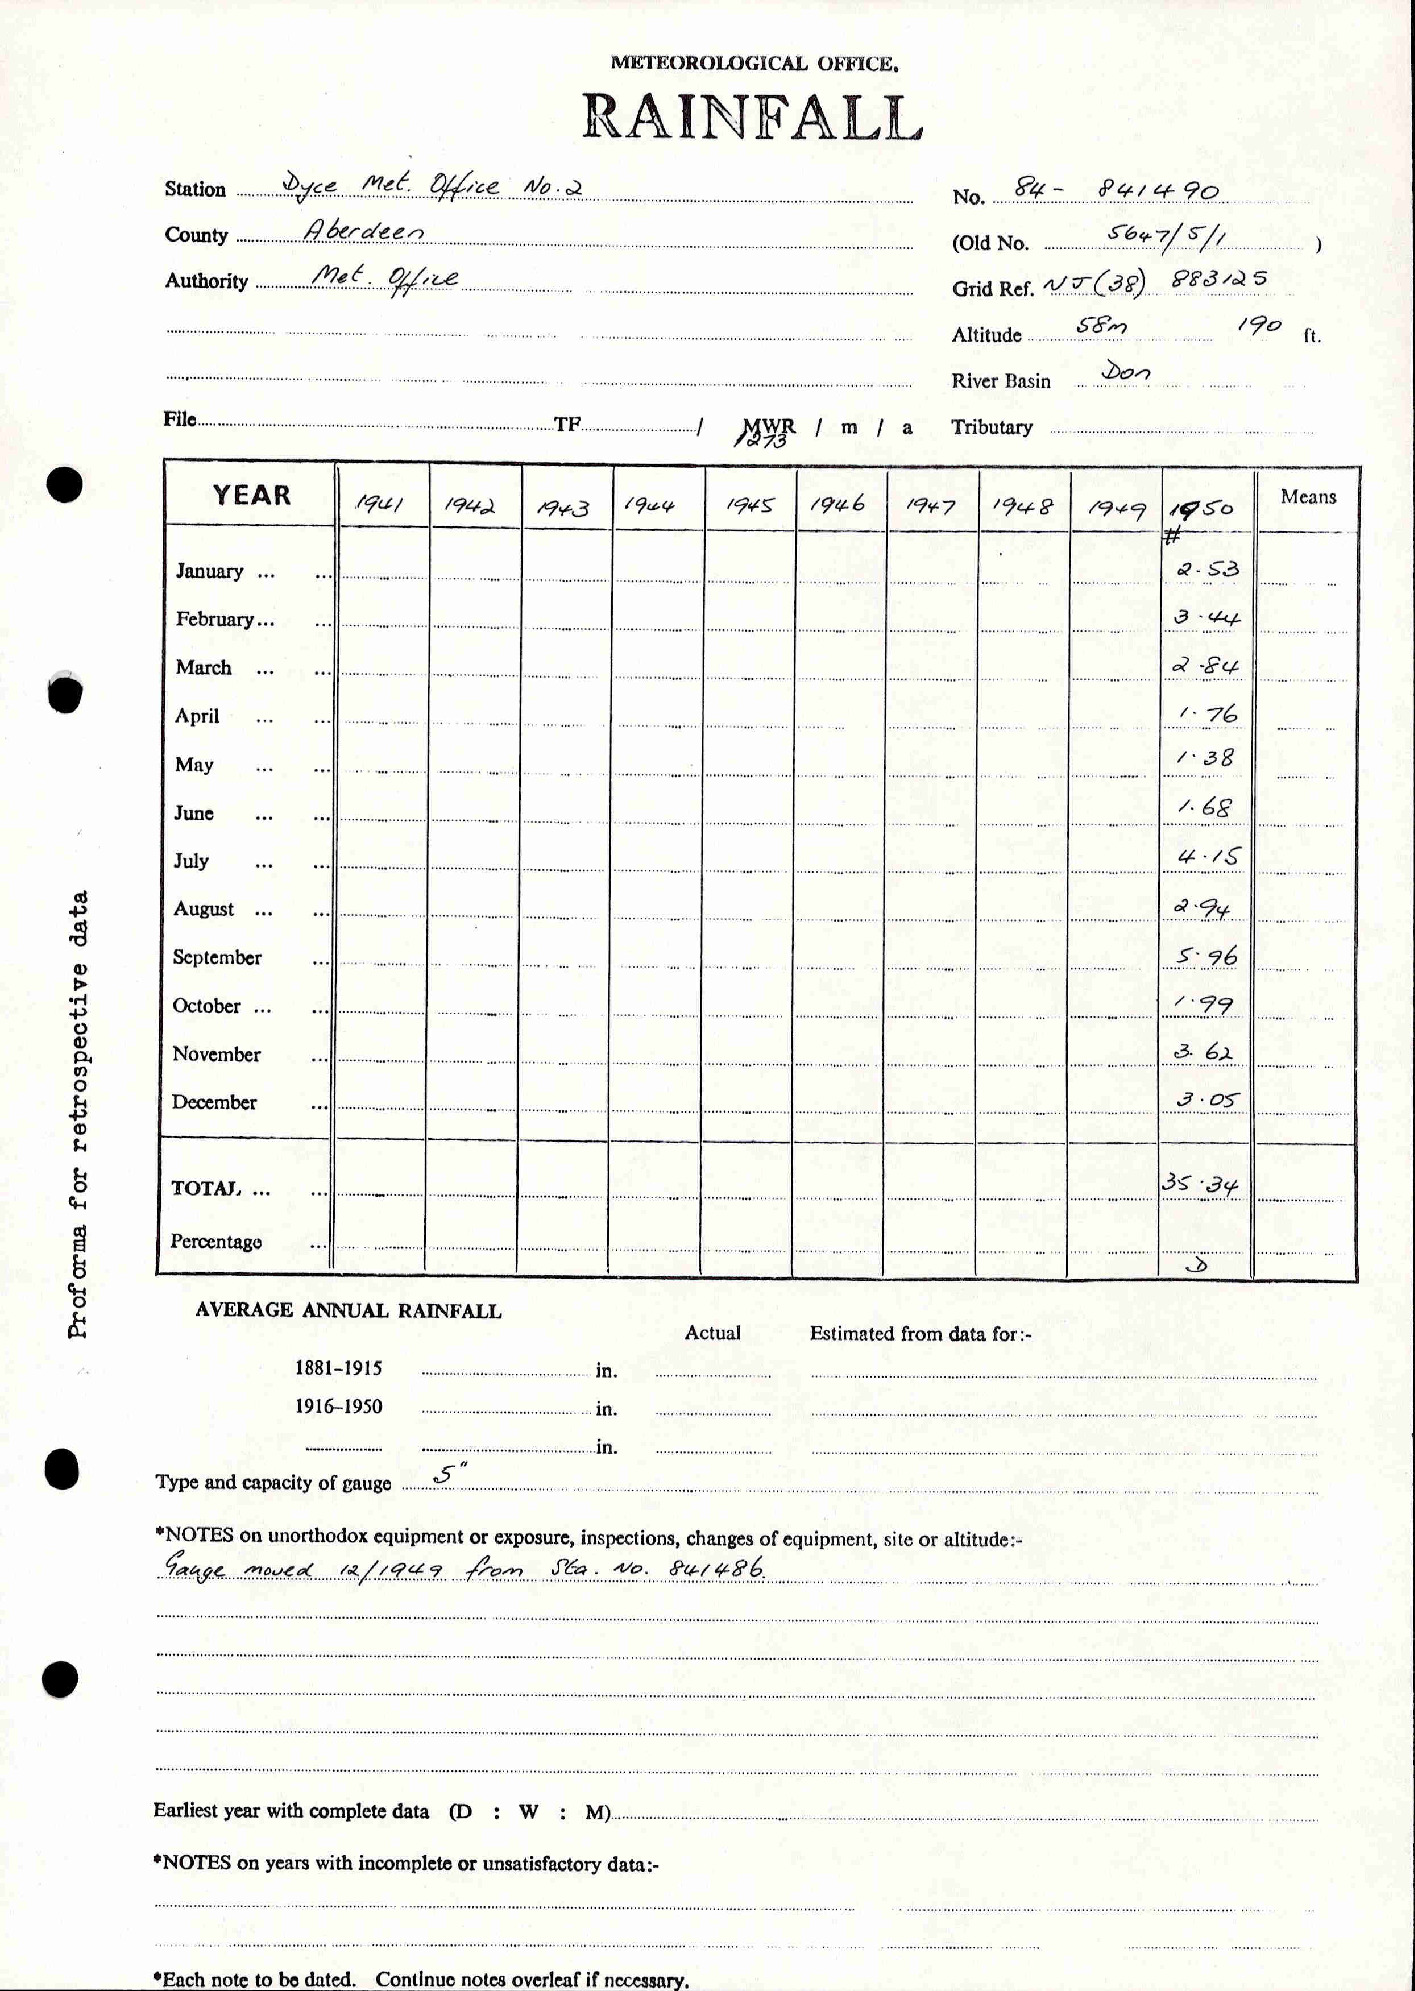 METEOROLOGICAL OFFICE.
RAINFALL
Station Dyce Met. Office No. 2
No. 84- 841490
County Aberdeen
(Old No. 5647/5/1 )
Authority Met. Office
Grid Ref. NJ (38) 883125
Altitude 58m 190 ft.
River Basin Don
File TF / MWR / m / a Tributary
1273
YEAR 1941 1942 1943 1944 1945 1946 1947 1948 1949 1950 Means
#
January ... ... 2.53
February... ... 3.44
March ... ... 2.84
April ... ... 1.76
May ... ... 1.38
June ... ... 1.68
July ... ... 4.15
August ... ... 2.94
September ... 5.96
October ... ... 1.99
November ... 3.62
December ... 3.05
TOTAL ... ... 35.34
Percentage ...
D
Proforma for retrospective data
AVERAGE ANNUAL RAINFALL
Actual Estimated from data for:-
1881-1915 in.
1916-1950 in.
in.
Type and capacity of gauge 5"
*NOTES on unorthodox equipment or exposure, inspections, changes of equipment, site or altitude:-
Gauge moved 12/1949 from Sta. No. 841486.
Earliest year with complete data (D : W : M)
*NOTES on years with incomplete or unsatisfactory data:-
*Each note to be dated. Continue notes overleaf if necessary.